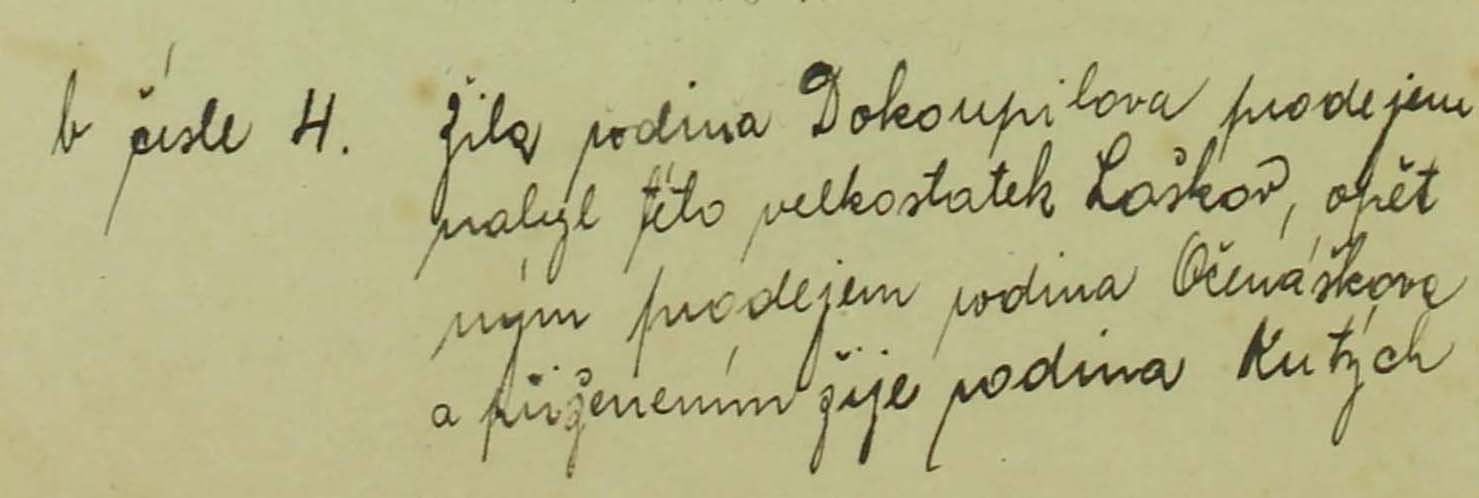 V čísle 4. žila rodina Dokoupilova prodejem
nabyl této velkostatek Laškov, opět
ným prodejem rodina Očenáškova
a přiženením žije rodina Kutých